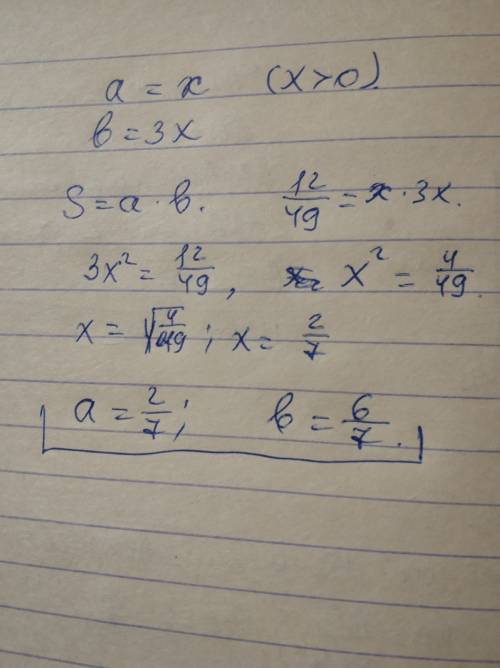 a = x (x>0)
b = 3x
S = a · b. 12/49 = x · 3x.
3x² = 12/49, x² = 4/49.
x = √4/49 ; x = 2/7
a = 2/7; b = 6/7.